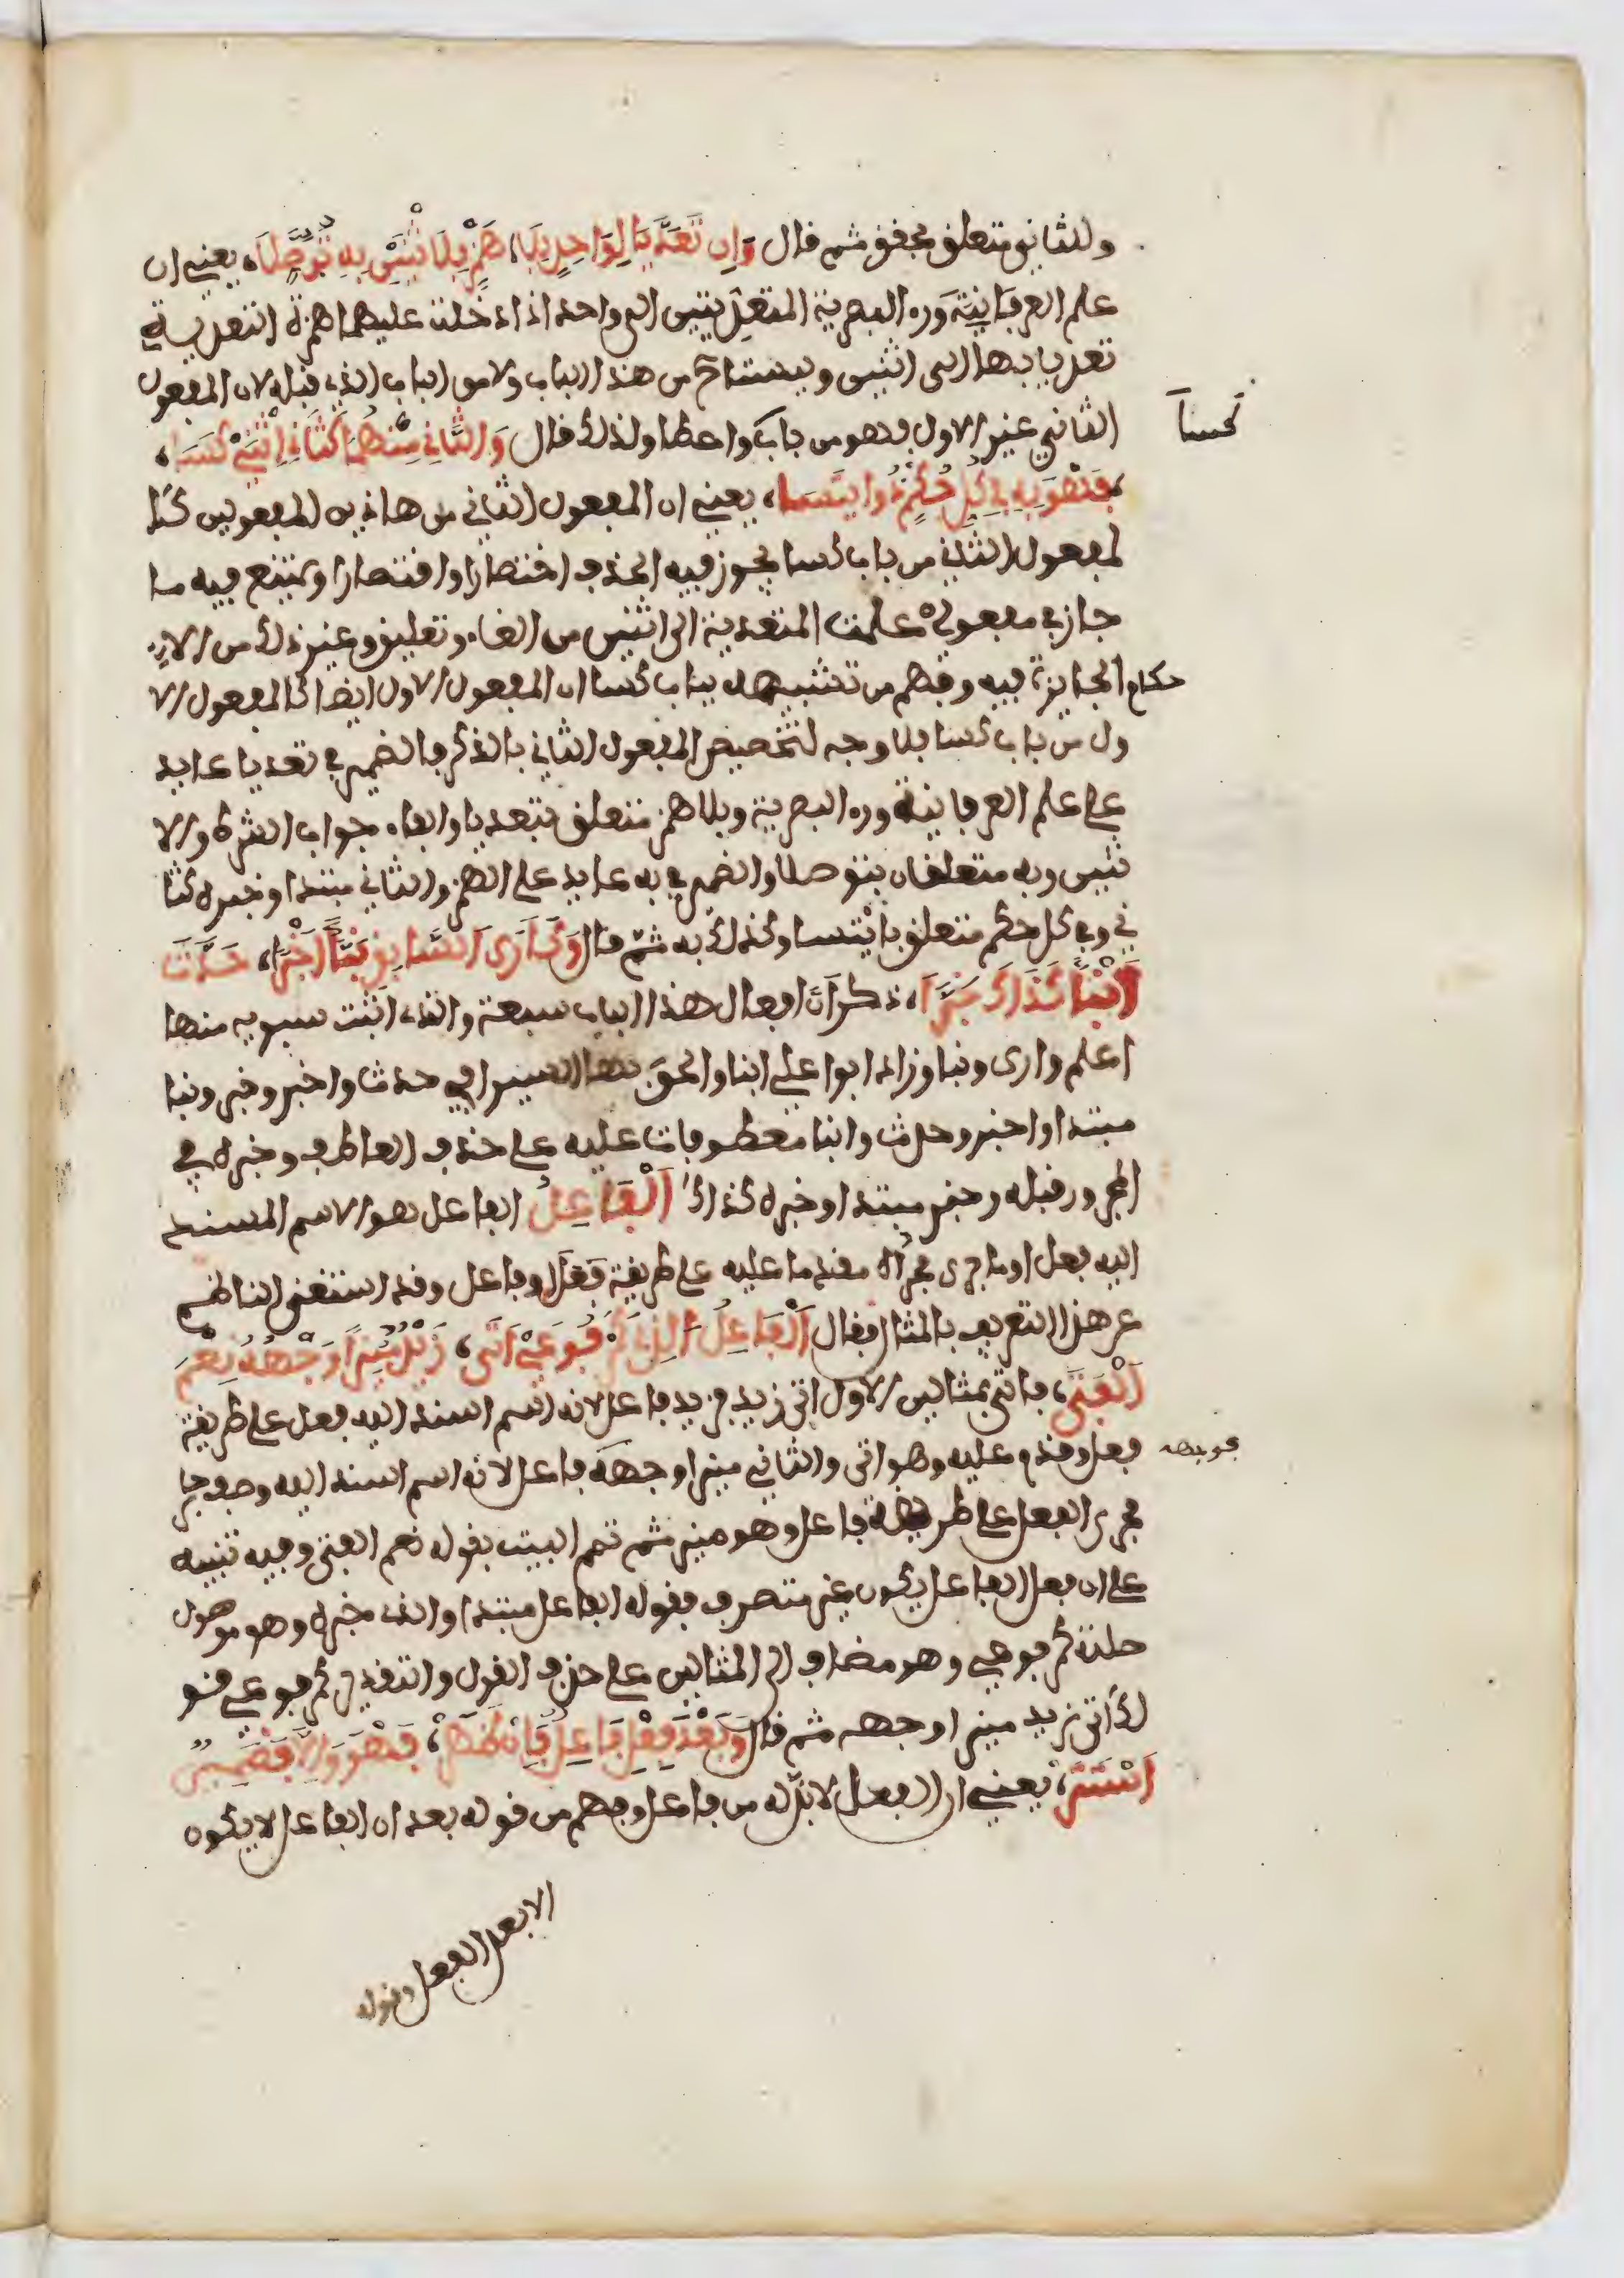 وللثاني متعلق بحقق ثم قال وَإِن تَعَدَّيَا لِوَاحِدٍ بِلَا هَمْزٍ فَلِاثْنَيْنِ بِهِ تَوَصَّلَا يعني ان
علم العرفانية وره البصرية المتعديتين الى واحد اذا دخلت عليهما همزة التعدية
تعديا بها الى اثنين وليستا من هذا الباب ولا من الباب الذي قبله لان المفعول
الثاني غير الاول فهو من باب كسا واعطا ولذلك قال وَالثَّانِ مِنْهُمَا كَثَانِ اثْنَيْ كَسَا
فَهْوَ بِهِ فِي كُلِّ حُكْمٍ ذُو ائْتِسَا يعني ان المفعول الثاني من هاذين المفعولين كا
لمفعول الثاني من باب كسا يجوز فيه الحذف اختصارا واقتصارا ويمتنع فيه ما
جاز في مفعولي علمت المتعدية الى اثنين من الغاء وتعليق وغير ذلك من الا
حكام الجايزة فيه وفهم من تشبيهه بباب كسا ان المفعول الاول ايضا كالمفعول الا
ول من باب كسا فلا وجه لتخصيص المفعول الثاني بالذكر فالضمير في تعديا عايد
على علم العرفانية وره البصرية وبلا همز متعلق بتعديا والفاء جواب الشرط ولا
ثنين وبه متعلقان بتوصلا والضمير في به عايد على الهمز والثاني مبتدا وخبره كثا
ني وفي كل حكم متعلق بائتسا وكذلك به ثم قال وَكَأَرَى السَّابِقِ نَبَّا أَخْبَرَا حَدَّثَ
أَنْبَأَ كَذَاكَ خَبَّرَا ذكر ان افعال هذا الباب سبعة والذي اثبت سيبويه منها
اعلم وارى ونبا وزاد ابوا علي انبا والحق بها السيرافي حدث واخبر وخبر ونبا
مبتدا واخبر وحدث وانبا معطوفات عليه على حذف العاطف وخبره في
المجرور قبله وخبر مبتدا وخبره كذاك اَلْفَاعِلُ الفاعل هو الاسم المسند
اليه فعل او ما جرى مجراه مقدما عليه على طريقة فعل او فاعل وقد استغنى الناظم
عن هذا التعريف بالمثال فقال اَلْفَاعِلُ الَّذِي كَمَرْفُوعَيْ أَتَى زَيْدٌ مُنِيراً وَجْهُهُ نِعْمَ
الْفَتَى فاتى بمثالين الاول اتى زيد فزيد فاعل لانه اسم اسند اليه فعل على طريقة
فعل وقدم عليه وهو اتى والثاني منيرا وجهه فاعل لانه اسم اسند اليه وصف جار
مجرى الفعل على طريقة فاعل وهو منير ثم تمم البيت بقوله نعم الفتى وفيه تنبيه
على ان فعل الفاعل يكون غير متصرف فقوله الفاعل مبتدا والذي خبره وهو موصول
صلته كمرفوعي وهو مضاف الى المثالين على حذف القول والتقدير كمرفوعي قو
لك اتى زيد منيرا وجهه ثم قال وَبَعْدَ فِعْلٍ فَاعِلٌ فَإِنْ ظَهَرْ فَهْوَ وَإِلَّا فَضَمِيرٌ
اسْتَتَرْ يعني ان الفعل لابد له من فاعل وفهم من قوله بعد ان الفاعل لا يكون
الا بعد الفعل وقوله
كسا
فوجهه